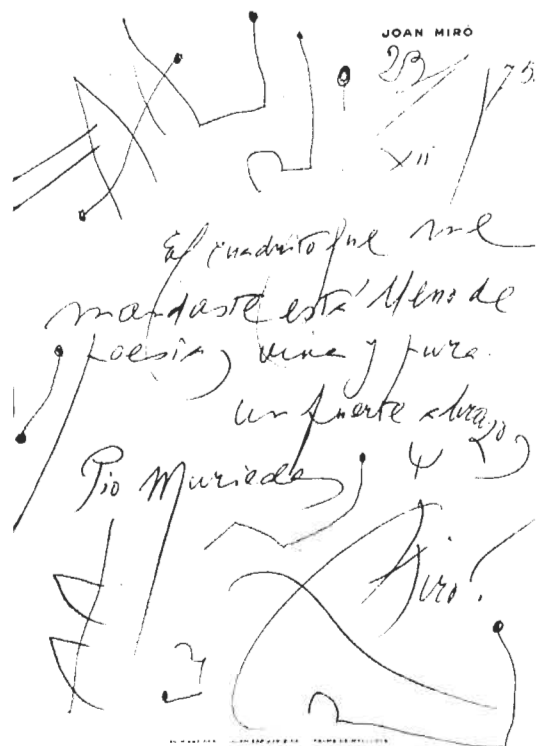 JOAN MIRÓ
23/XII/75.
El cuadrito que me
mandaste está lleno de
poesía, viva y pura.
Un fuerte abrazo,
Pío Muriedas
Miró.